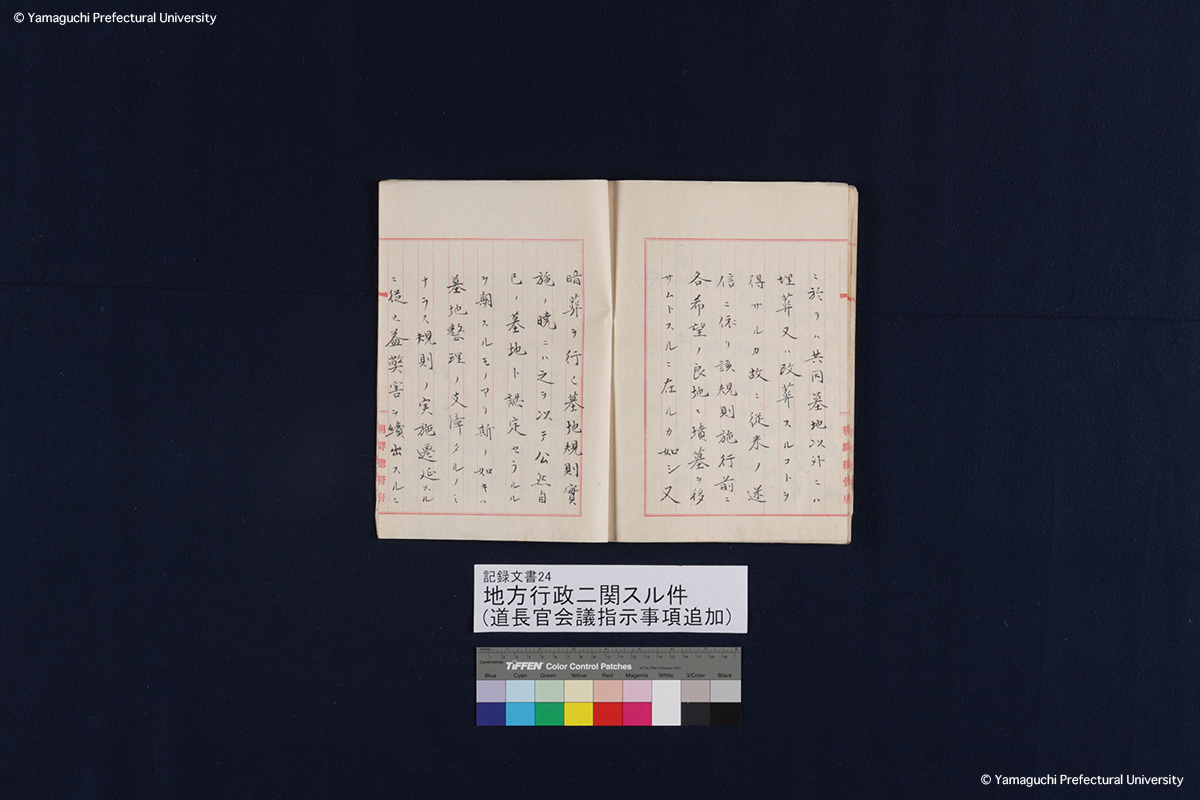 © Yamaguchi Prefectural University
ニ於テハ共同墓地以外ニハ
埋葬又ハ改葬スルコトヲ
得サルカ故ニ従来ノ迷
信ニ依リ該規則施行前ニ
各希望ノ良地ニ墳墓ヲ移
サムトスルニ在ルカ如シ又
暗葬ヲ行ヒ墓地規則實
施ノ暁ニハ之ヲ以テ公然自
己ノ墓地ト認定セラルル
ヲ期スルモノアリ斯ノ如キハ
墓地整理ノ支障タルノミ
ナラス規則ノ実施遷延スル
ニ従ヒ益弊害ヲ續出スルニ
朝鮮總督府
記録文書24
地方行政ニ関スル件
(道長官会議指示事項追加)
TIFFEN Color Control Patches
© The Tiffen Company, 2007
Centimetres
Blue Cyan Green Yellow Red Magenta White 3/Color Black
© Yamaguchi Prefectural University